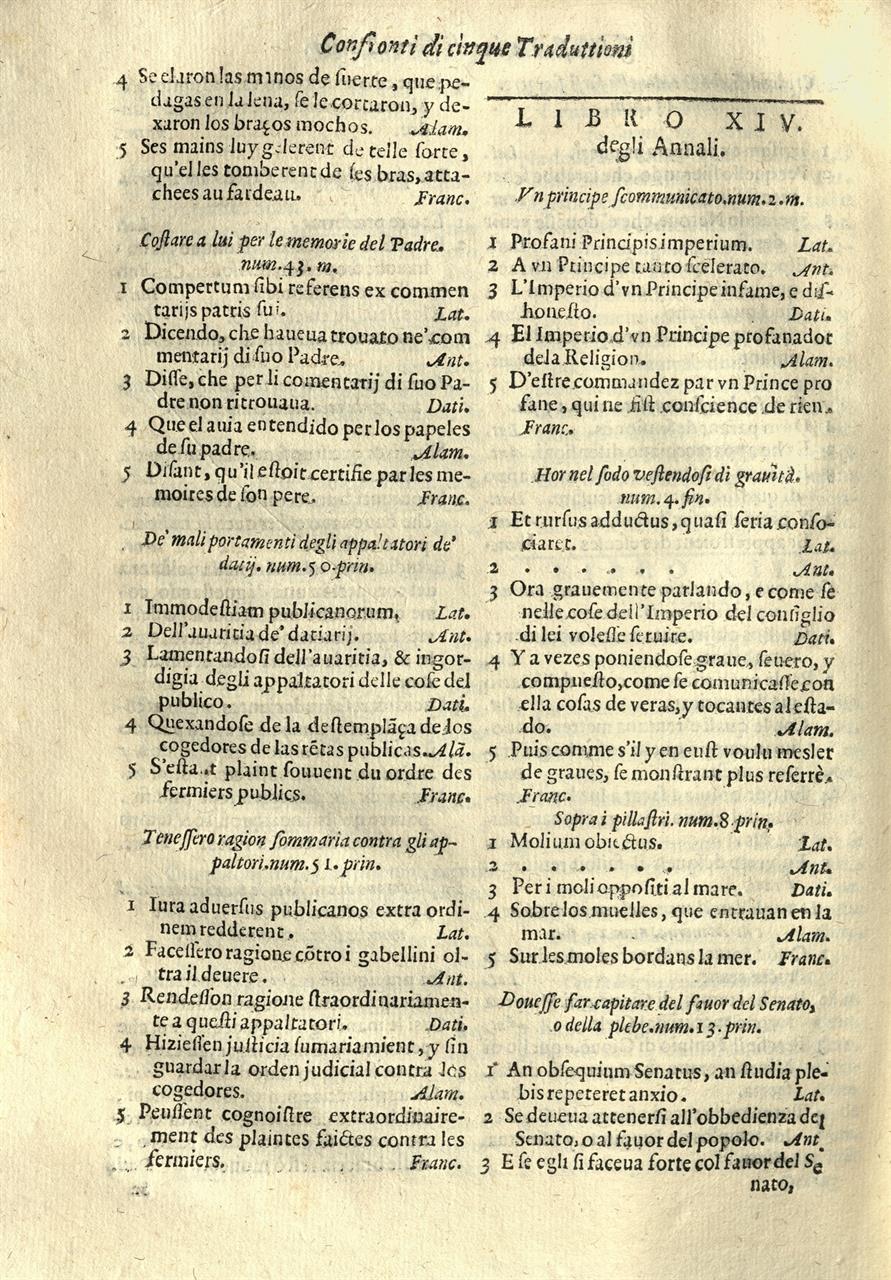 Confronti di cinque Traduttioni
4 Se elaron las manos de ſuerte, que pe-
dagas en la lena, ſe le cortaron, y de-
xaron los braços mochos. Alam.
5 Ses mains luy gelerent de telle ſorte,
qu'elles tomberent de ſes bras, atta-
chees au fardeau. Franc.
Coſtare a lui per le memorie del Padre.
num.43. m.
1 Compertum ſibi referens ex commen
tarijs patris ſui. Lat.
2 Dicendo, che haueua trouato ne' com
mentarij di ſuo Padre. Ant.
3 Diſſe, che per li comentarij di ſuo Pa-
dre non ritrouaua. Dati.
4 Que el auia entendido per los papeles
de ſu padre. Alam.
5 Diſant, qu'il eſtoit certifie par les me-
moires de ſon pere. Franc.
De' mali portamenti degli appaltatori de'
datij. num.50.prin.
1 Immodeſtiam publicanorum. Lat.
2 Dell'auaritia de' datiarij. Ant.
3 Lamentandoſi dell'auaritia, & ingor-
digia degli appaltatori delle coſe del
publico. Dati.
4 Quexandoſe de la deſtemplãça de los
cogedores de las rẽtas publicas. Alã.
5 S'eſta.t plaint ſouuent du ordre des
fermiers publics. Franc.
Teneſſero ragion ſommaria contra gli ap-
paltori.num.51.prin.
1 Iura aduerſus publicanos extra ordi-
nem redderent. Lat.
2 Faceſſero ragione cõtro i gabellini ol-
tra il deuere. Ant.
3 Rendeſſon ragione ſtraordinariamen-
te a queſti appaltatori. Dati.
4 Hizieſſen juſticia ſumariamient, y ſin
guardar la orden judicial contra los
cogedores. Alam.
5 Peuſſent cognoiſtre extraordinaire-
ment des plaintes faictes contra les
fermiers. Franc.
LIBRO XIV.
degli Annali.
Vn principe ſcommunicato.num.2.m.
1 Profani Principis imperium. Lat.
2 A vn Principe tanto ſcelerato. Ant.
3 L'Imperio d'vn Principe infame, e diſ-
honeſto. Dati.
4 El Imperio d'vn Principe profanador
dela Religion. Alam.
5 D'eſtre commandez par vn Prince pro
fane, qui ne fiſt conſcience de rien.
Franc.
Hor nel ſodo veſtendoſi di grauità.
num.4.fin.
1 Et rurſus adductus, quaſi ſeria conſo-
ciaret. Lat.
2 . . . . . . Ant.
3 Ora grauemente parlando, e come ſe
nelle coſe dell'Imperio del conſiglio
di lei voleſſe ſeruire. Dati.
4 Y a vezes poniendoſe graue, ſeuero, y
compueſto, come ſe comunicaſſe con
ella coſas de veras, y tocantes al eſta-
do. Alam.
5 Puis comme s'il y en euſt voulu mesler
de graues, ſe monſtrant plus referrè.
Franc.
Sopra i pillaſtri. num.8.prin.
1 Molium obiectus. Lat.
2 . . . . . . Ant.
3 Per i moli oppoſiti al mare. Dati.
4 Sobre los muelles, que entrauan en la
mar. Alam.
5 Sur les moles bordans la mer. Franc.
Doueſſe far capitare del fauor del Senato,
o della plebe.num.13.prin.
1 An obſequium Senatus, an ſtudia ple-
bis repeteret anxio. Lat.
2 Se deueua attenerſi all'obbedienza del
Senato, o al fauor del popolo. Ant.
3 E ſe egli ſi faceua forte col fauor del Se
nato,